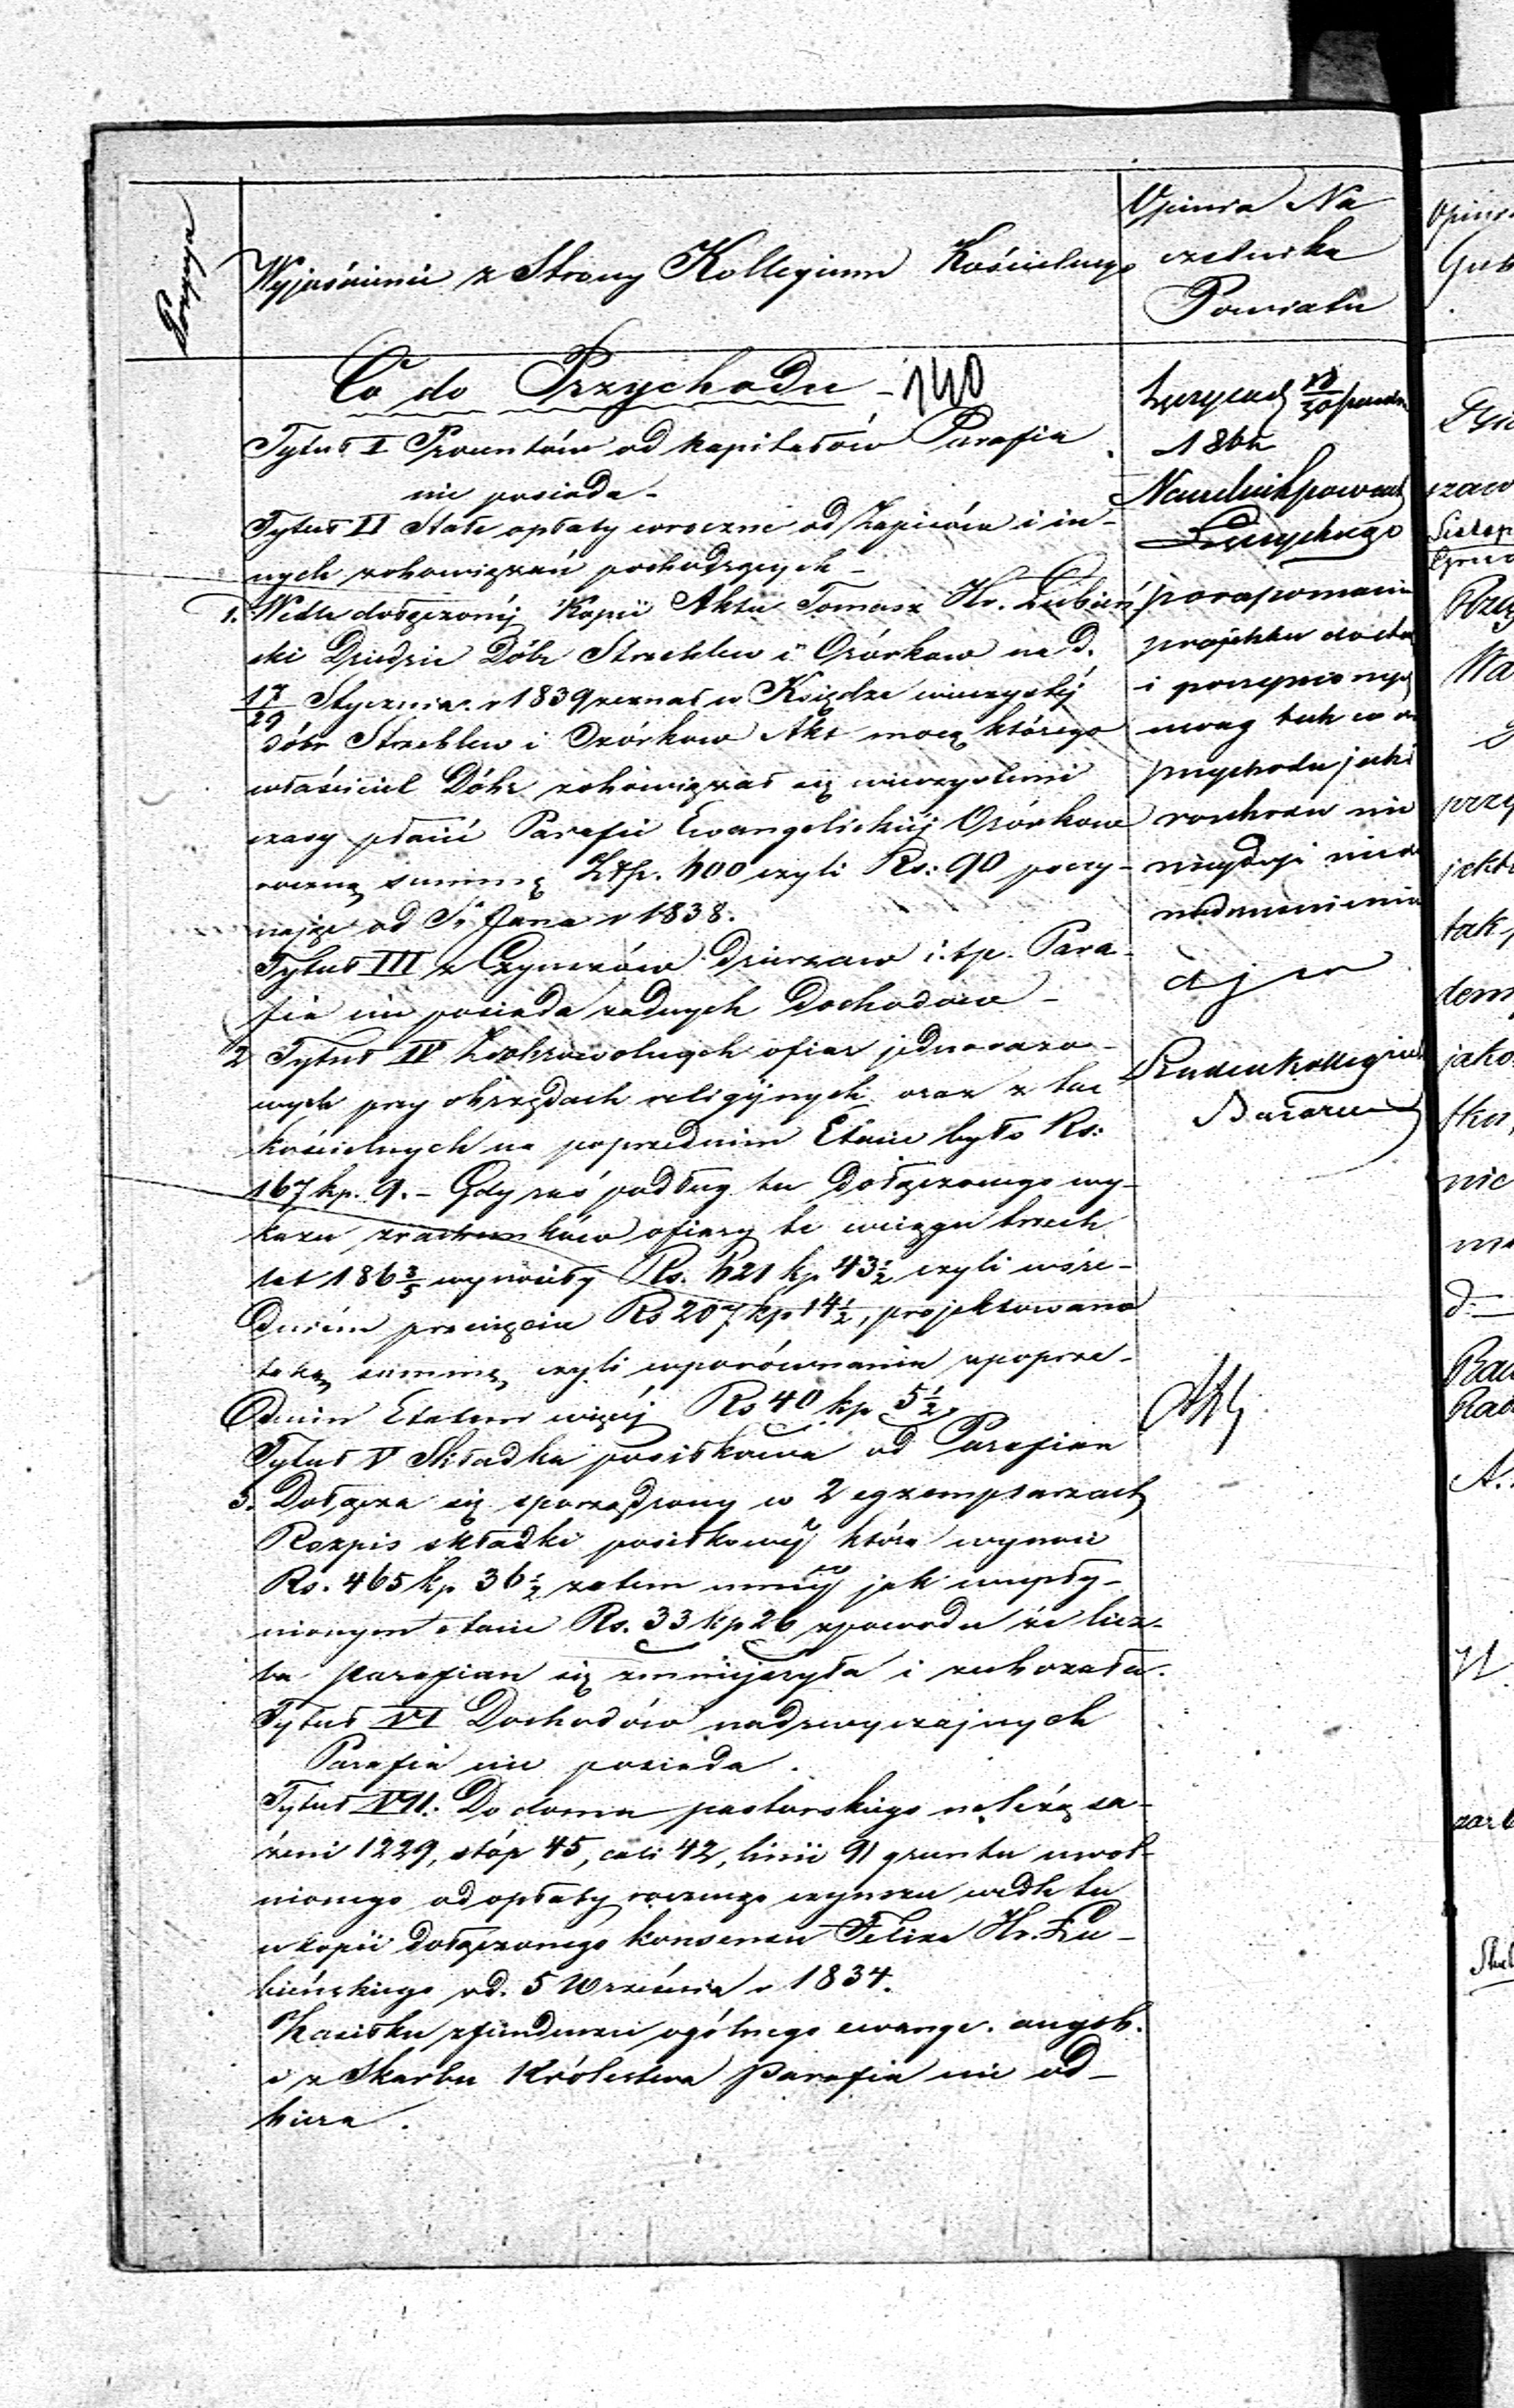 Pozycya
Wyjaśnienie z Strony Kollegium Kościelnego
Opinia Na
czelnika
Powiatu
Co do Przychodu - 140
Tytuł I Procentów od kapitałów Parafia
nie posiada -
Tytuł II Stałe opłaty wroczne od Zapisów i in-
nych zobowiązań pochodzących -
1. Wedle dołączonej Kopii Aktu Tomasz Hr. Łubień
ski Dziedzic Dóbr Strzeblew i Ozórkow na d.
17/29 Stycznia r 1839 zeznał w Księdze wieczystej
dóbr Strzeblew i Ozórkow Akt mocą którego
właściciel Dóbr zobowiązał się wieczystemi
czasy płacić Parafii Ewangelickiej Ozórkow
roczną summę Złp. 600 czyli Rs: 90 poczy-
nając od Sº Jana r 1838.
Tytuł III z Czynszów Dzierzaw i. tp. Para-
fia nie posiada zadnych Dochodow -
2 Tytuł IV Z dobrowolnych ofiar jednorazo-
wych przy obrzędach religijnych oraz z tac
kościelnych na poprzednim Etacie było Rs:
167 kp. 9. - Gdy zaś podług tu dołączonego wy-
kazu z rachunków ofiary te wciągu trzech
lat 186 3/5 wynosiły Rs. 621 kp 43½ czyli wśre-
dniem przecięciu Rs 207 kp 14½, projektowano
taką summę, czyli wporównaniu zpoprze-
dnim Etatem więcej Rs 40 kp 5½.
Tytuł V Składka posiłkowa od Parafian
3. Dołącza się sporządzony w 2 egzemplarzach
Rozpis składki posiłkowej która wynosi
Rs. 465 kp 36½ zatem mniej jak wupły-
nionym etacie Rs. 33 kp 26 zpowodu że licz-
ba parafian się zmniejszyła i zubożała.
Tytuł VI Dochodów nadzwyczajnych
Parafia nie posiada.
Tytuł VII. Do domu pastorskiego należą są-
żeni 1229, stóp 45, cali 42, linii 91 gruntu uwol-
nionego od opłaty rocznego czynszu wedle tu
w kopii dołączonego konsensu Felixa Hr. Łu-
bieńskiego z d. 5 Września r 1834.
Zasiłku z funduszu ogólnego ewange. augsb.
i z Skarbu Królestwa Parafia nie od-
biera.
Naczelnik powiatu
Łęczyckiego
projektu
i poczynionych
uwag tak w
przychodu jak i
rozchodu nie
Opini
Gub
tak
jako
nic